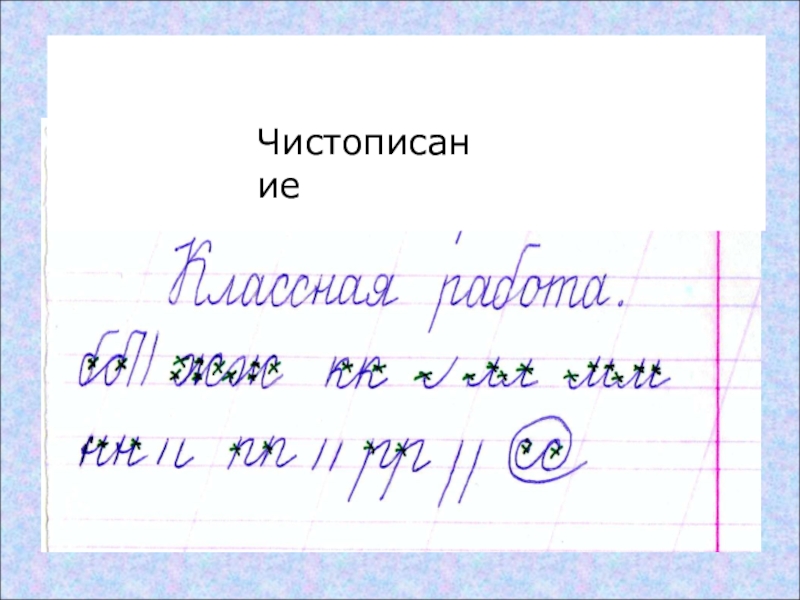 Чистописан
ие
Классная работа.
бб жж кк лл мм
нн пп рр сс